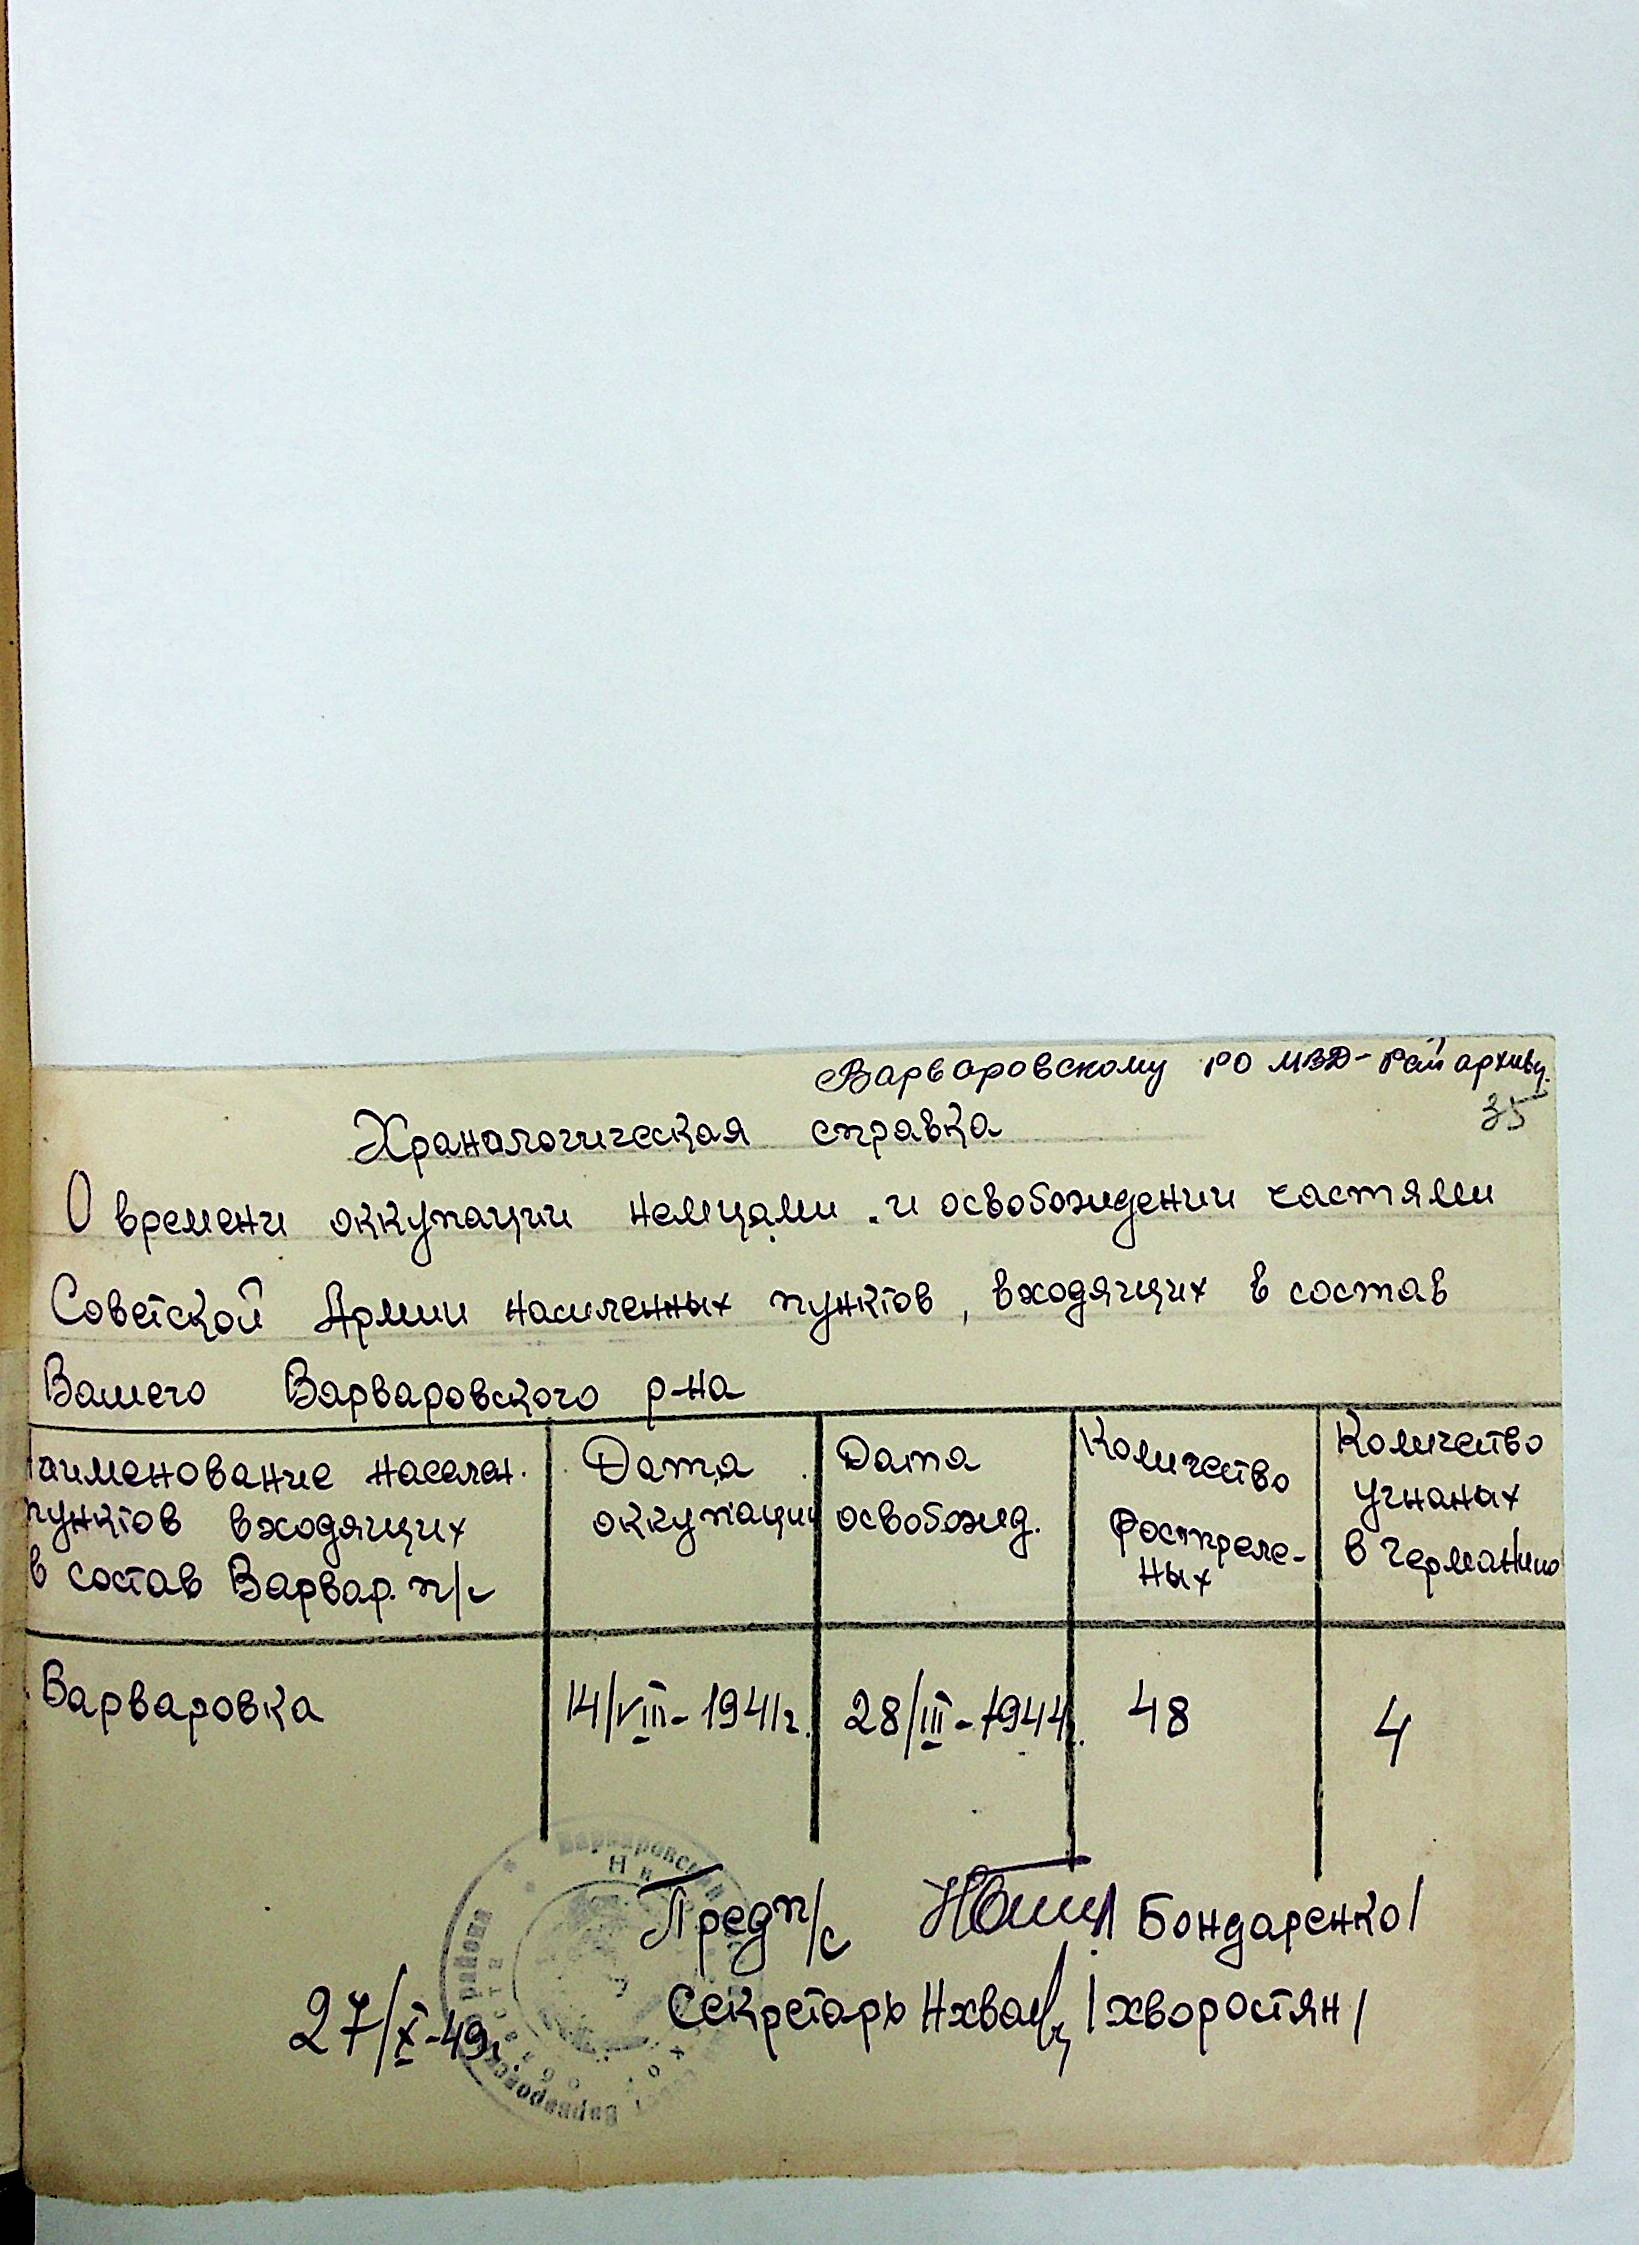 Варваровскому РО МВД - Рай архиву.
35
Хранологическая справка
О времени оккупации немцами и освобождении частями
Советской Армии населенных пунктов, входящих в состав
Вашего Варваровского р-на
аименование населен.
пунктов входящих
в состав Варвар. п/с
Дата
оккупации
Дата
освобожд.
Количество
Ростреле-
ных
Количество
угнаных
в Германию
Варваровка
14/VIII - 1941г.
28/III - 1944г.
48
4
Пред п/с Бондаренко/
Секретарь /Хворостян/
27/X-49г.
Варваровский
района